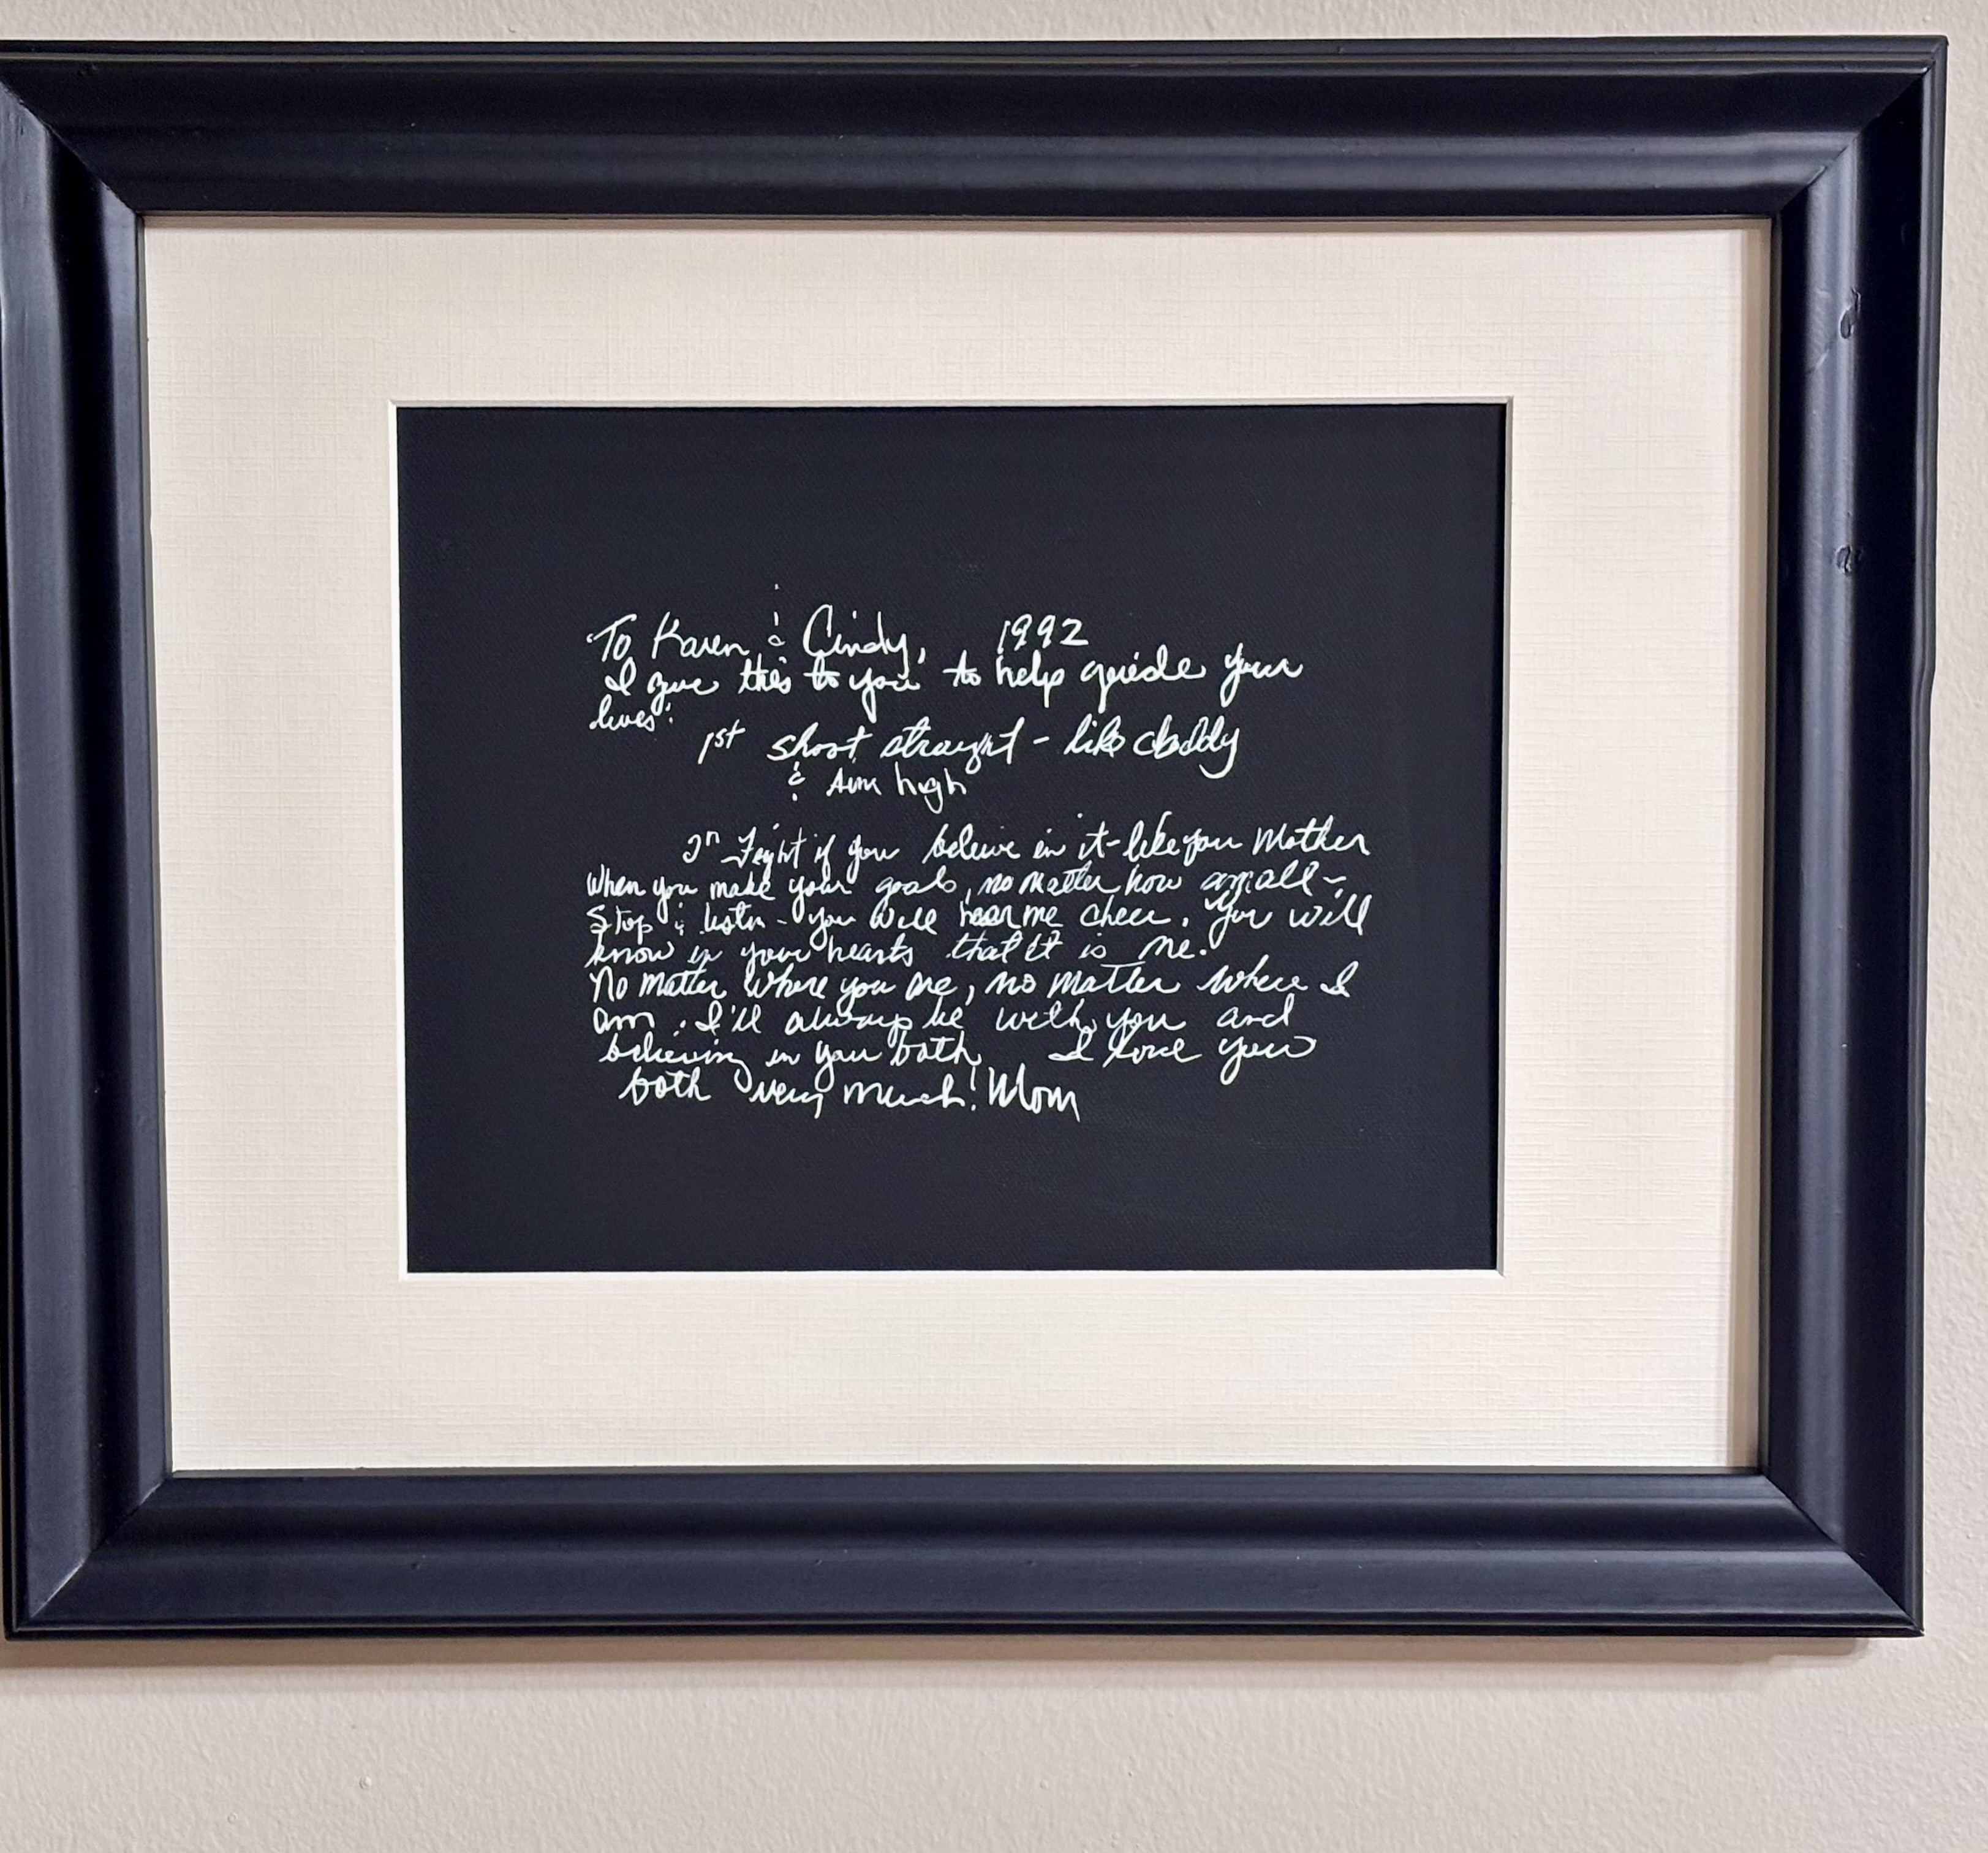 To Karen & Cindy, 1992
I give this to you to help guide your
lives:
1st shoot straight - like daddy
& Aim high
2n Fight if you believe in it - like you Mother
When you make your goals, no matter how small -
Stop & listen - you will hear me cheer. You will
know in your hearts that it is me.
No matter where you are, no matter where I
am. I'll always be with you and
believing in you both. I love you
both very much! Mom